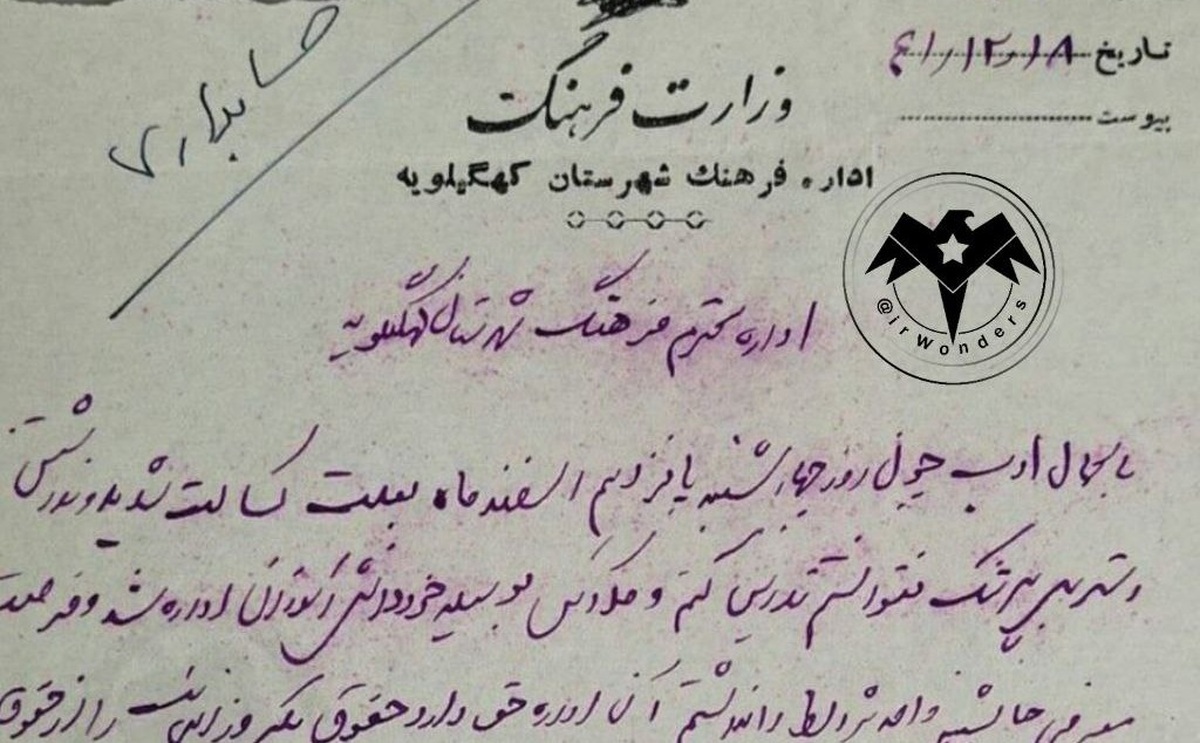 تاریخ ۴۱/۱۲/۱۸
پیوست
حسابداری
وزارت فرهنگ
اداره فرهنك شهرستان کهگیلویه
@irWonders
اداره محترم فرهنگ شهرستان کهگیلویه
با کمال ادب چون روز چهارشنبه پانزدهم اسفندماه بعلت کسالت شدید و نداشتن
دسترسی به پزشک نتوانستم تدریس کنم و کلاس بوسیله خود دانش‌آموزان اداره شد و فرصت
معرفی جانشین واجد شرایط را نداشتم آن اداره حق دارد حقوق یکروز اینجانب را از حقوق